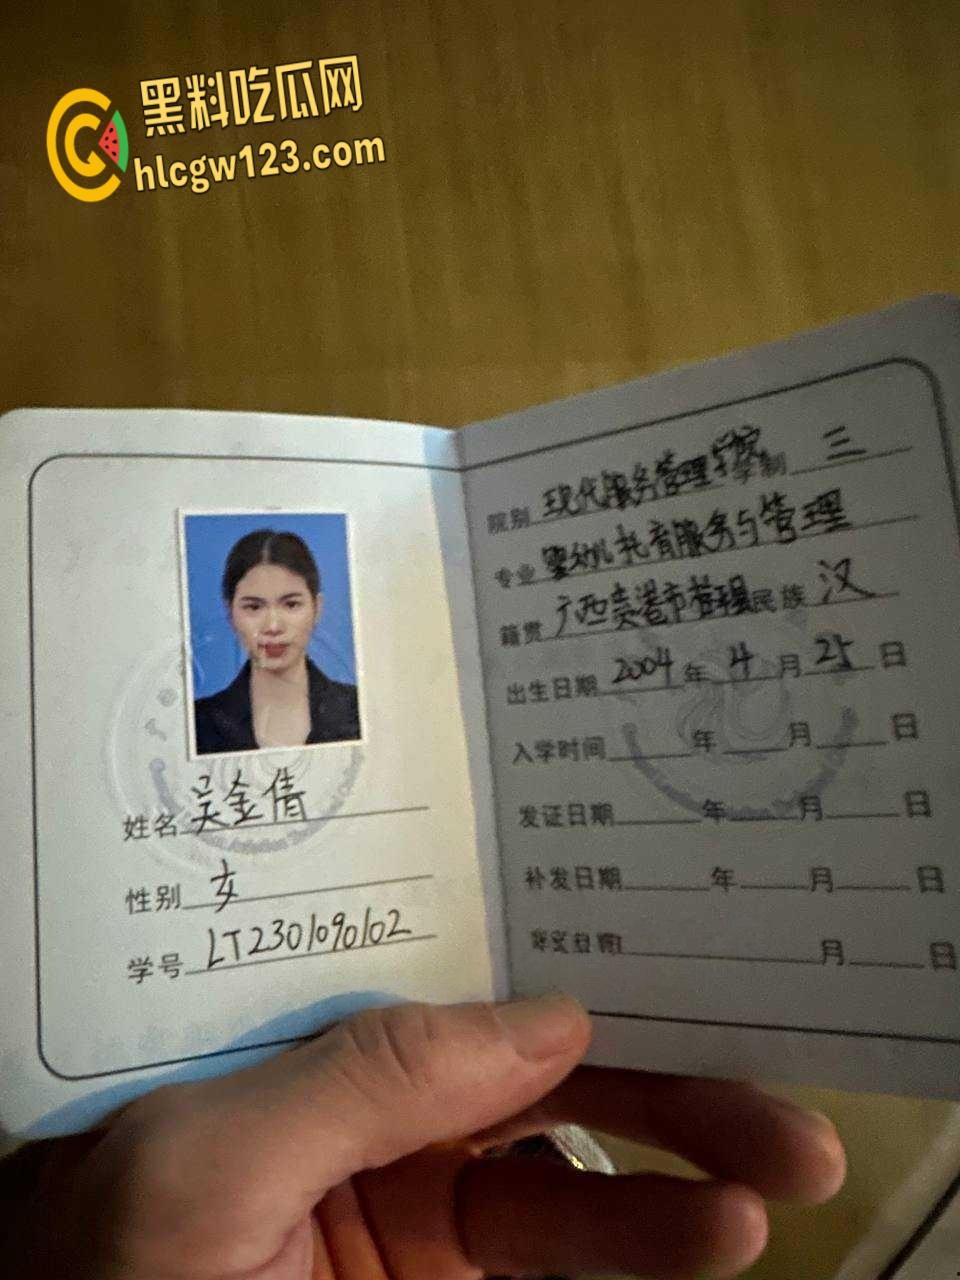 黑料吃瓜网
hlcgw123.com
姓名 吴金倩
性别 女
学号 LT2301090102
院别 现代服务管理学院 学制 三
专业 婴幼儿托育服务与管理
籍贯 广西贵港市 民族 汉
出生日期 2004 年 4 月 25 日
入学时间 年 月 日
发证日期 年 月 日
补发日期 年 月 日
月 日